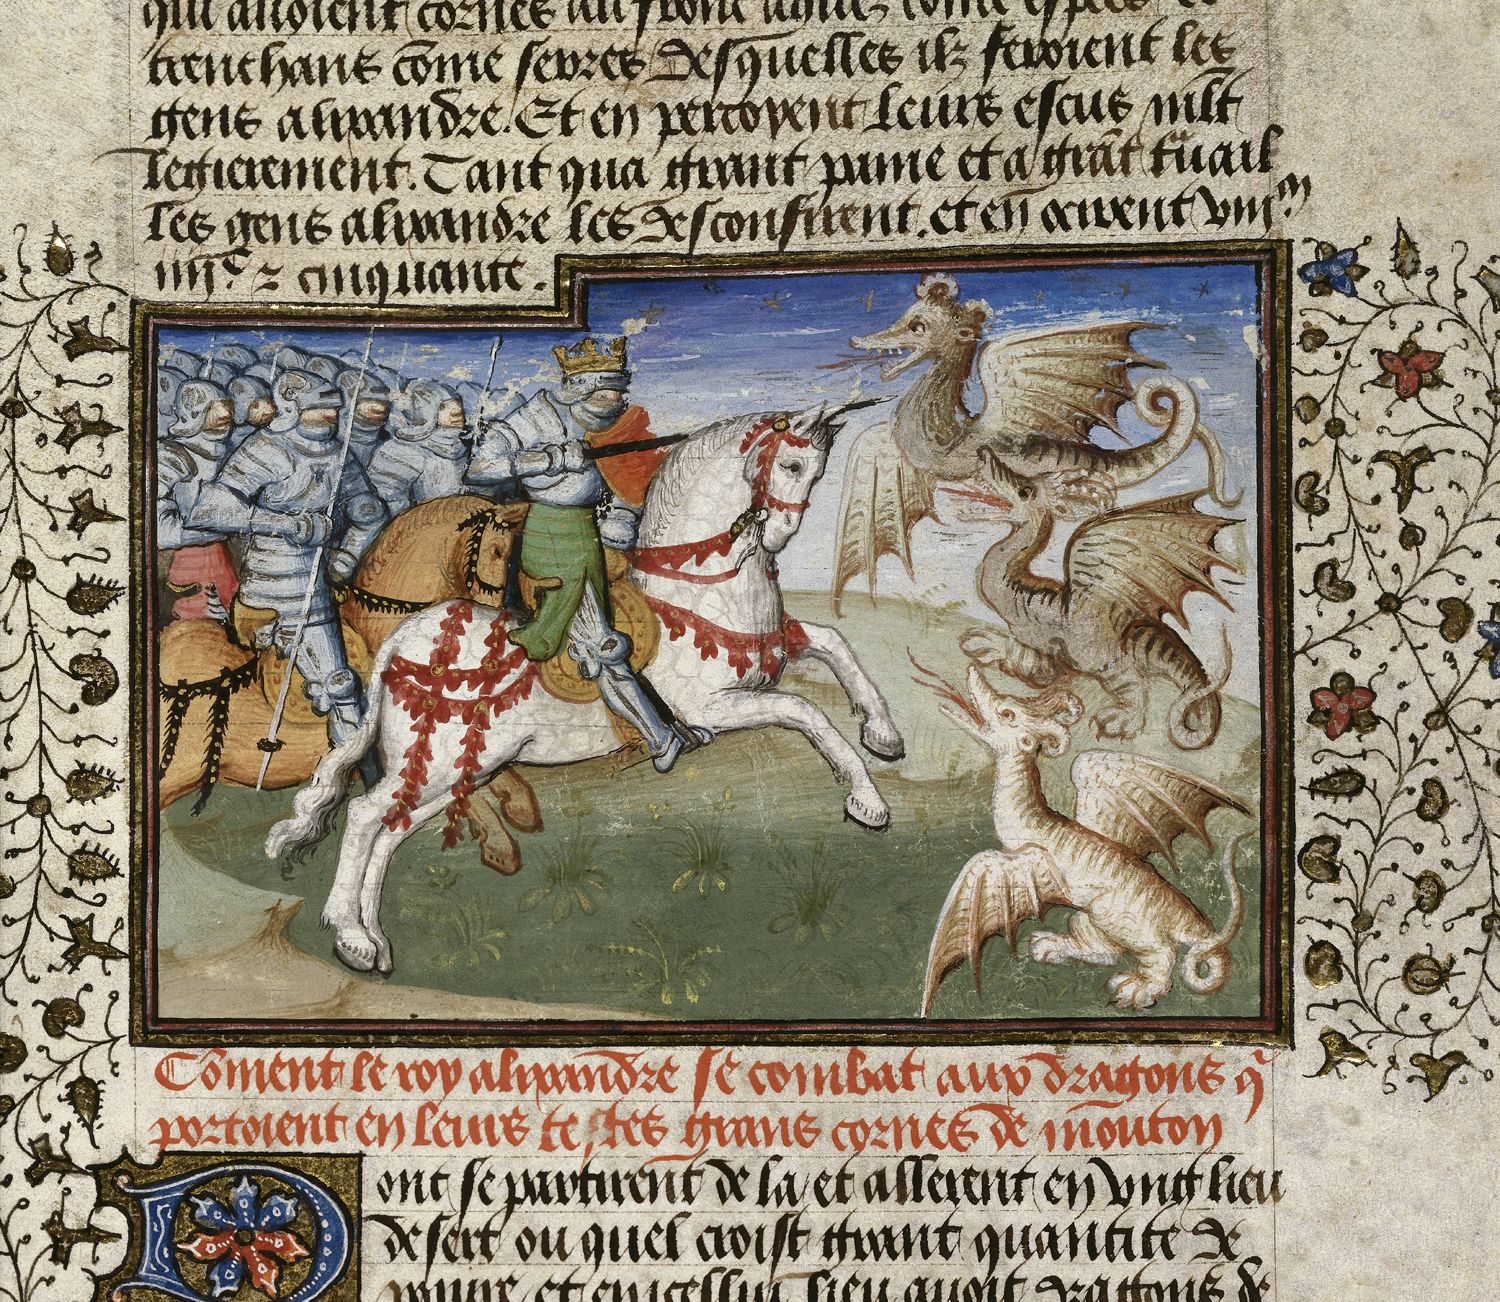 qui auoient cornes au front agues cōme espees et
trenchans cōme seores desquelles ilz feroient les
gens alixandre. Et en percoyent leurs escus mlt
legierement. Tant qua grant paine et a grāt
les gens alixandre les desconfirent. et en
iiijᶜ ⁊ cinquante.
Cōment le roy alixandre se combat aux dragons q̄
portoient en leurs testes grans cornes de mouton
Dont se partirent de la et allerent en vng lieu
desert ou quel croist grant quantite de
poiure et en icellui lieu auoit dragons de